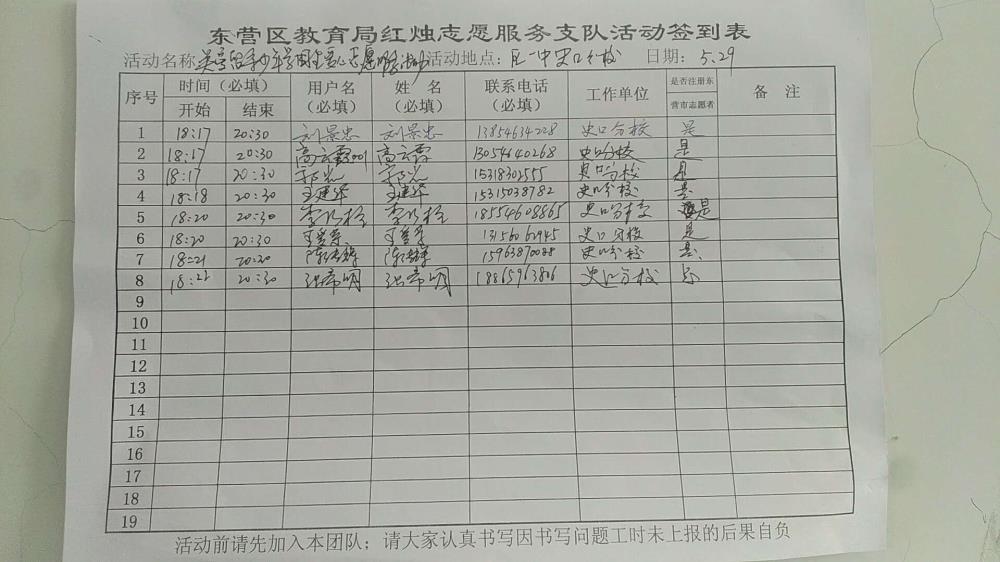 东营区教育局红烛志愿服务支队活动签到表
活动名称 活动地点：区一中史口分校 日期：5.29
序号 时间（必填） 用户名（必填） 姓名（必填） 联系电话（必填） 工作单位 是否注册东营市志愿者 备注
开始 结束
1 18:17 20:30 刘景忠 刘景忠 13854634228 史口分校 是
2 18:17 20:30 高云霞3001 高云霞 13054640268 史口分校 是
3 18:17 20:30 郭光 郭光 15318302555 史口分校 是
4 18:18 20:30 王建华 王建华 15315038782 史口分校 是
5 18:20 20:30 18554608865 史口分校 是
6 18:20 20:30 13156062945 史口分校 是
7 18:21 20:30 15963870088 史口分校 是
8 18:22 20:30 张希明 张希明 18865963806 史口分校
9
10
11
12
13
14
15
16
17
18
19
活动前请先加入本团队；请大家认真书写因书写问题工时未上报的后果自负